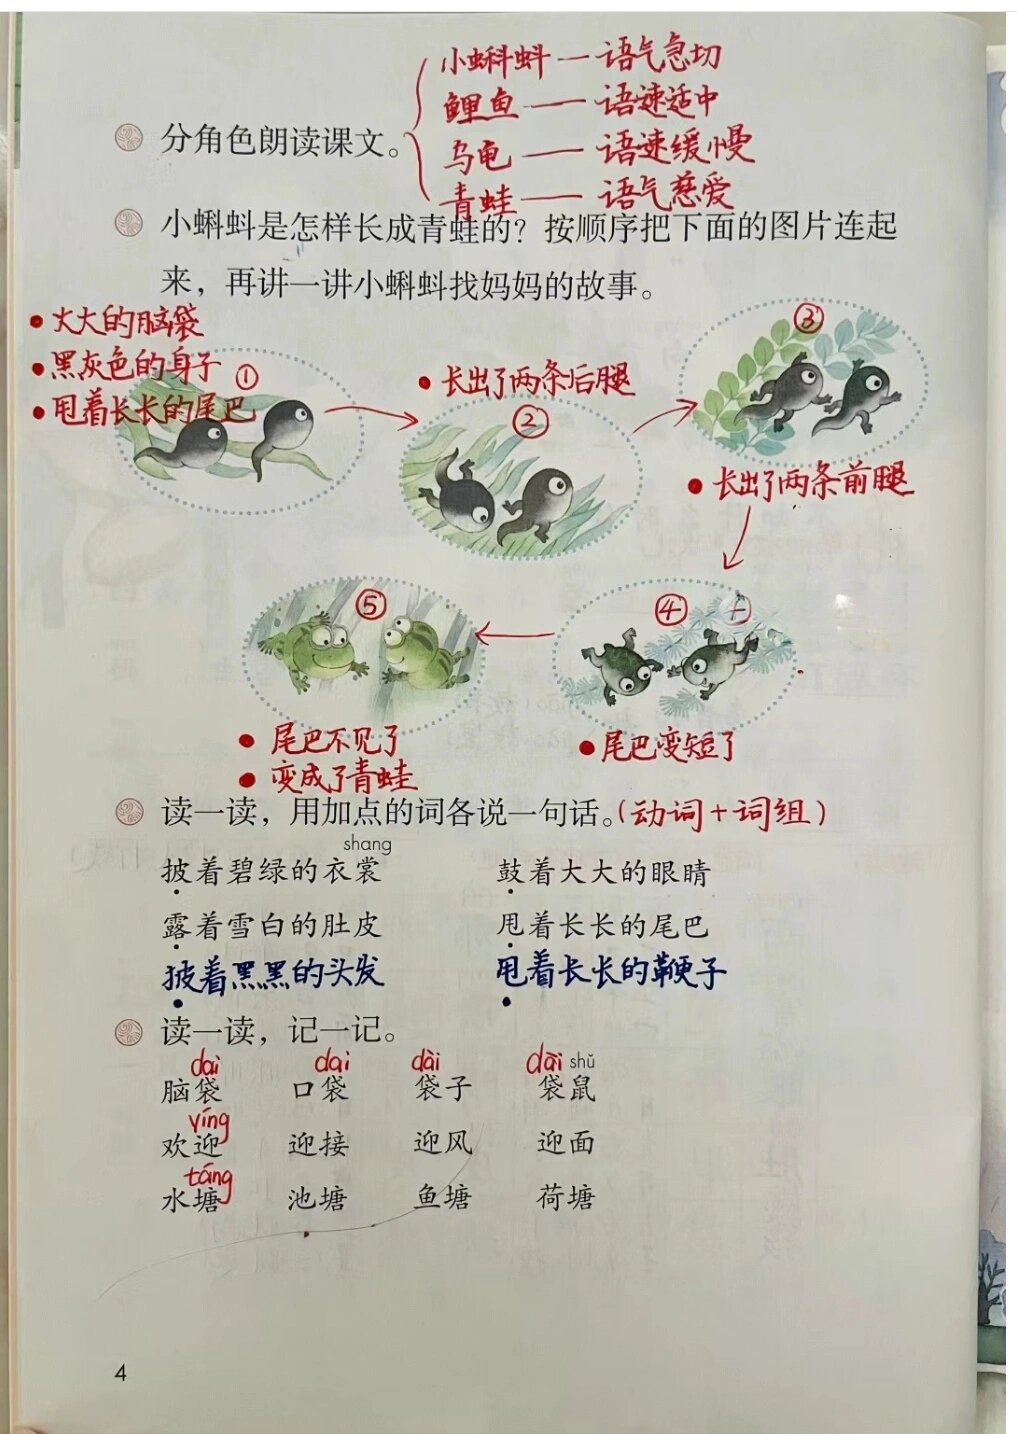 小蝌蚪—语气急切
鲤鱼——语速适中
分角色朗读课文。
乌龟——语速缓慢
青蛙——语气慈爱
小蝌蚪是怎样长成青蛙的？按顺序把下面的图片连起
来，再讲一讲小蝌蚪找妈妈的故事。
• 大大的脑袋
• 黑灰色的身子
• 甩着长长的尾巴
①
• 长出了两条后腿
②
③
• 长出了两条前腿
④
⑤
• 尾巴不见了
• 变成了青蛙
• 尾巴变短了
读一读，用加点的词各说一句话。（动词+词组）
shang
披着碧绿的衣裳 鼓着大大的眼睛
露着雪白的肚皮 甩着长长的尾巴
披着黑黑的头发 甩着长长的鞭子
读一读，记一记。
dai dai dài dài shǔ
脑袋 口袋 袋子 袋鼠
yíng
欢迎 迎接 迎风 迎面
táng
水塘 池塘 鱼塘 荷塘
4